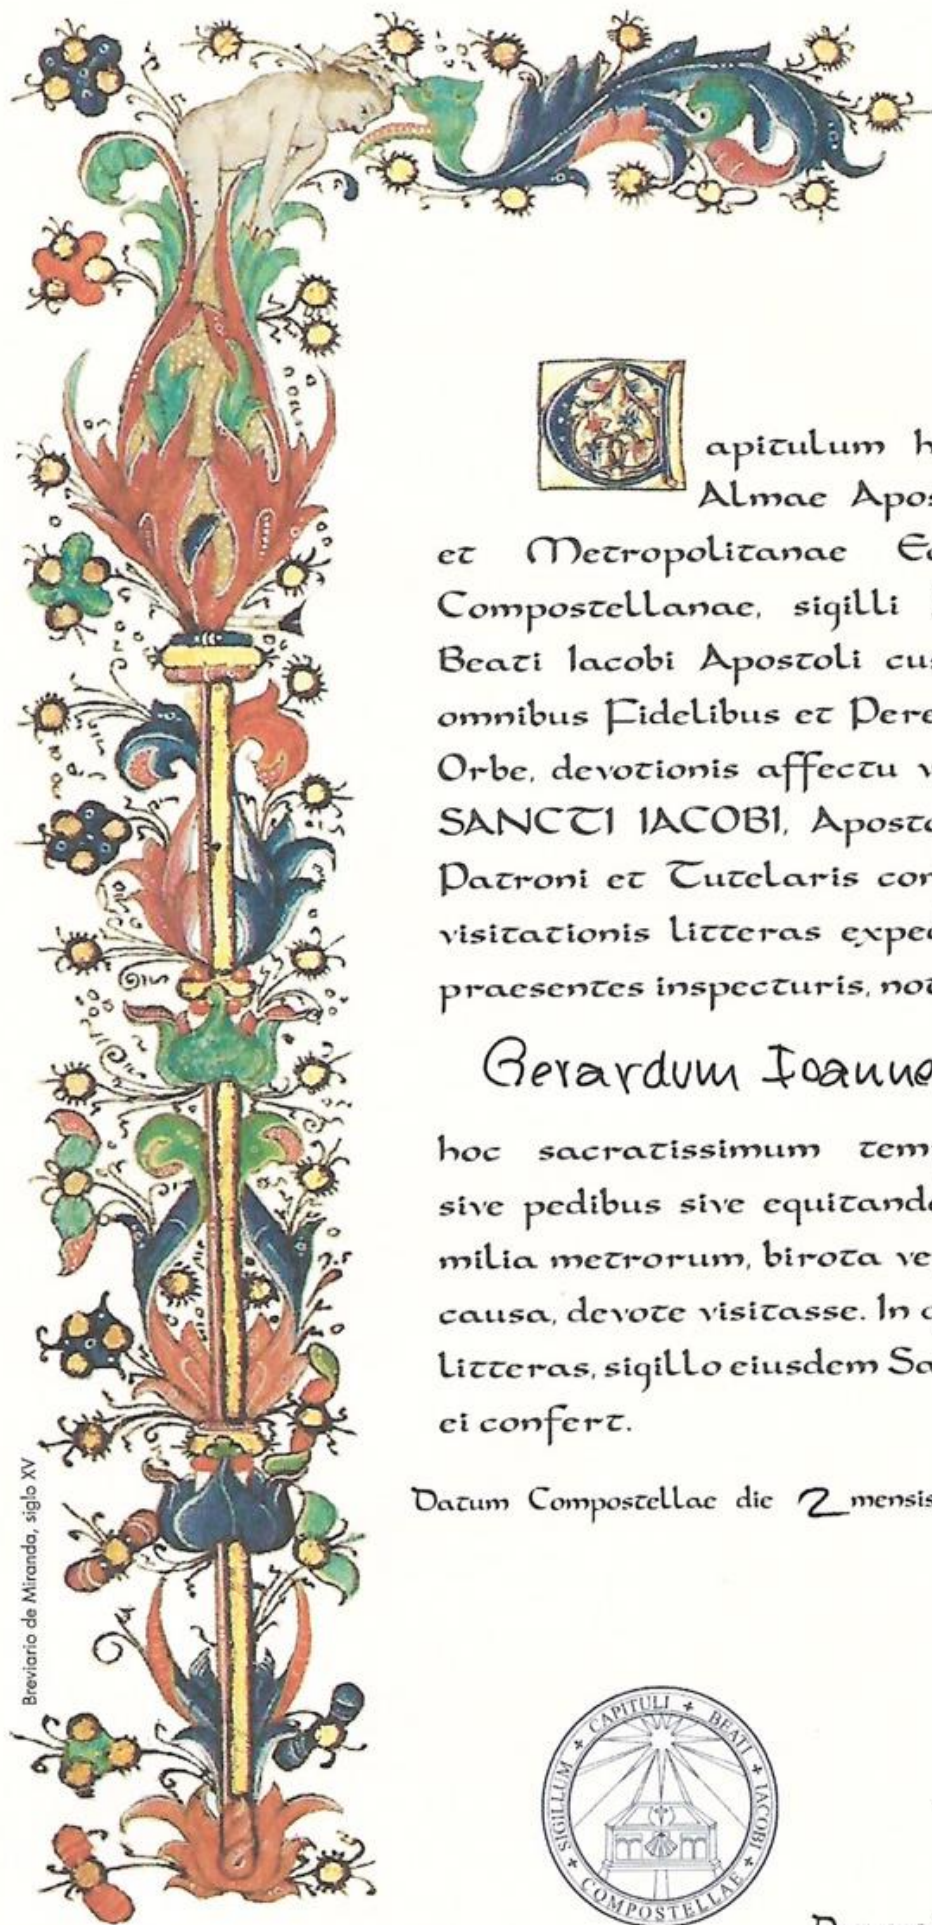 Capitulum h
Almae Apos
et Metropolitanae Ec
Compostellanae, sigilli
Beati Iacobi Apostoli cus
omnibus Fidelibus et Pere
Orbe, devotionis affectu v
SANCTI IACOBI, Aposto
Patroni et Tutelaris con
visitationis litteras expec
praesentes inspecturis, not
Gerardum Ioanne
hoc sacratissimum tem
sive pedibus sive equitando
milia metrorum, birota ve
causa, devote visitasse. In
litteras, sigillo eiusdem Sa
ei confert.
Datum Compostellae die 2 mensis
Breviario de Miranda, siglo XV
SIGILLUM + CAPITULI + BEATI + IACOBI + COMPOSTELLAE +